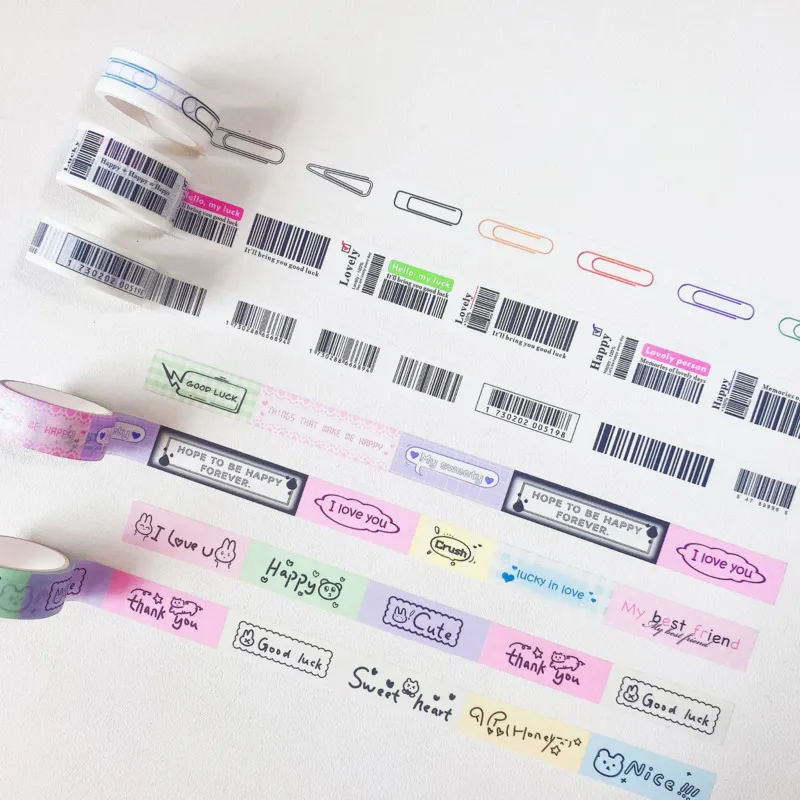 Lucky
Happy + Happy = Happy
Hello, my luck
It'll bring you good luck
It'll bring you good luck
Lovely
Lovely · 100%
Hello, my luck
It'll bring you good luck
Lovely
It'll bring you good luck
Happy
Lovely person
Memories of lovely days
Happy
Memories
1 730202 005198
1 730202 005198
GOOD LUCK
THINGS THAT MAKE ME HAPPY
My sweety
HOPE TO BE HAPPY
FOREVER.
I love you
Crush
lucky in love
My best friend
My best friend
HOPE TO BE HAPPY
FOREVER.
I love you
I love U
Happy
Cute
thank you
Good luck
thank you
Good luck
Sweet heart
Honey
Nice !!!